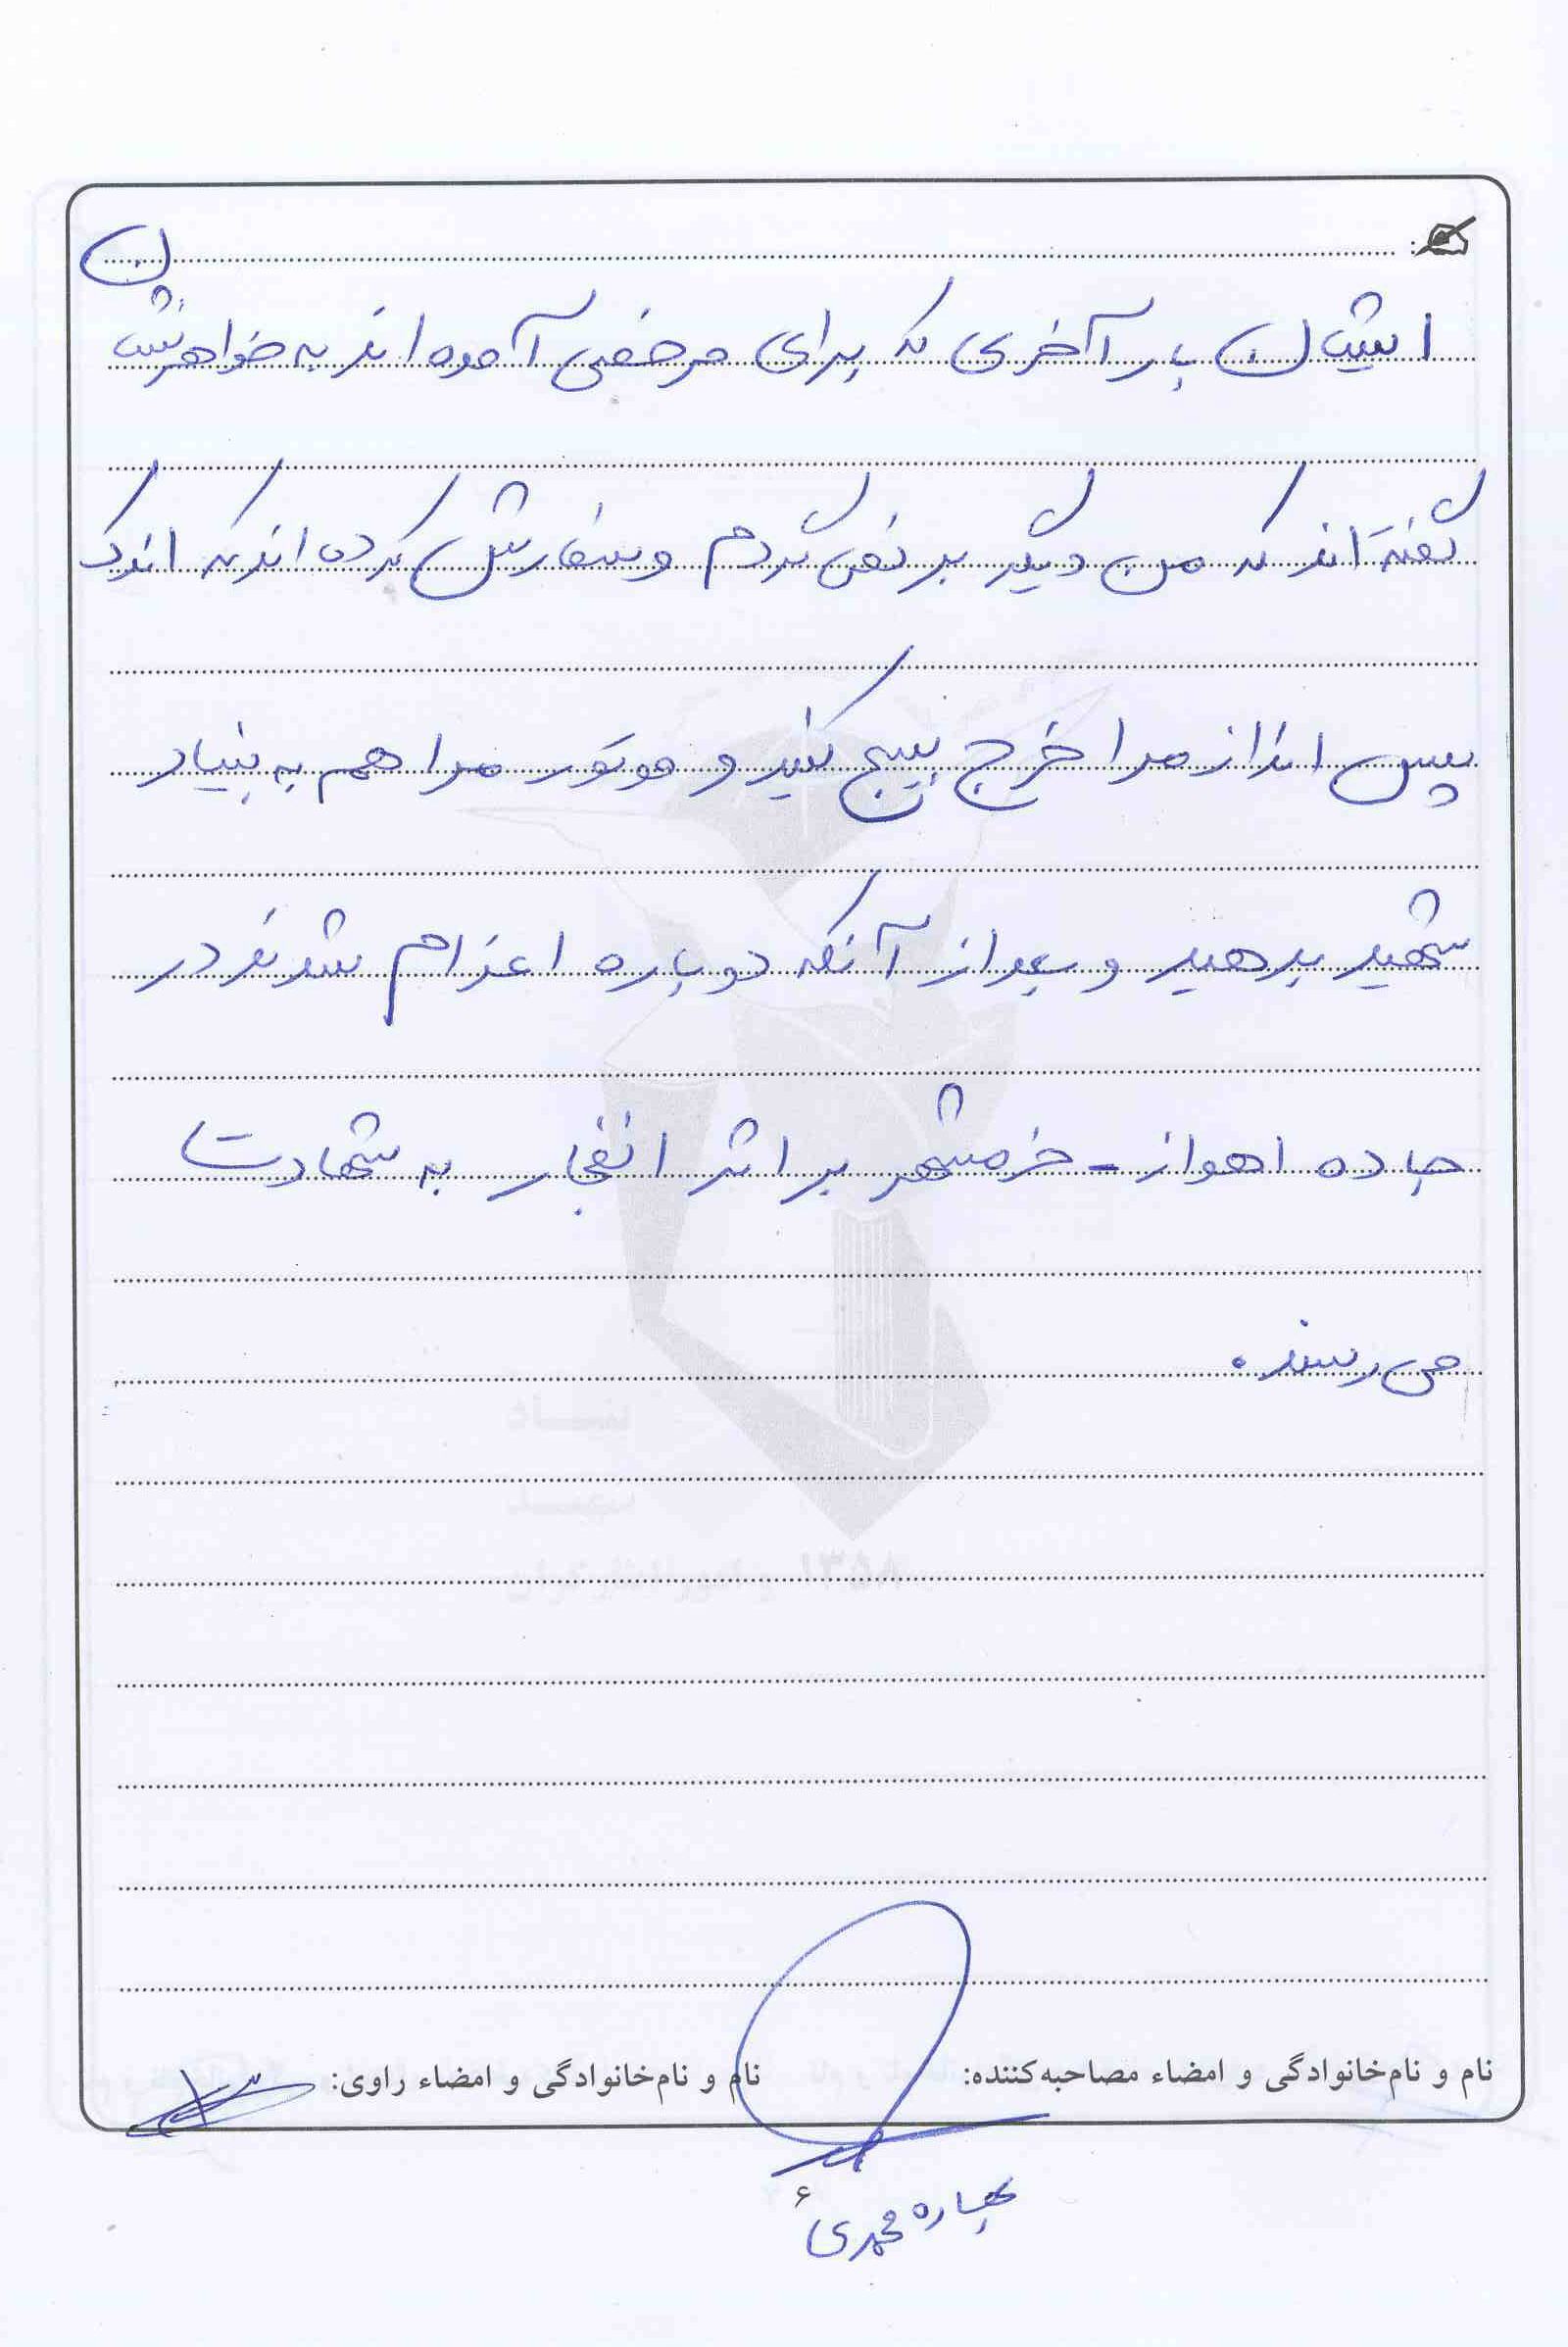 ایشان بار آخری که برای مرخصی آمده اند به خواهرشان
گفته اند که من دیگر بر نمی گردم و سفارش کرده اند که اندک
پس انداز مرا خرج بسیج کنید و موتور مرا هم به بنیاد
شهید بدهید و بعد از آنکه دوباره اعزام شدند در
جاده اهواز - خرمشهر بر اثر انفجار به شهادت
می رسند.
بنیاد
شهید
و امور ایثارگران ۱۳۵۸
نام و نام‌خانوادگی و امضاء مصاحبه‌کننده: نام و نام‌خانوادگی و امضاء راوی:
۶
بهاره محمدی